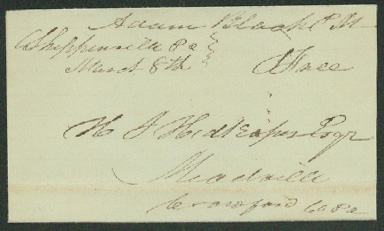 Adam Black P. M
Sheppenville Pa
March 8th Free
H J Huidekoper Esqr
Meadville
Crawford Co Pa